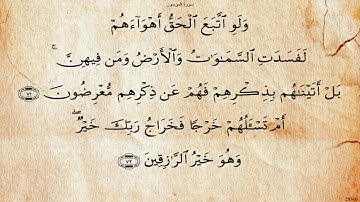 سورة المؤمنون
وَلَوِ ٱتَّبَعَ ٱلْحَقُّ أَهْوَآءَهُمْ
لَفَسَدَتِ ٱلسَّمَـٰوَٰتُ وَٱلْأَرْضُ وَمَن فِيهِنَّ ۚ
بَلْ أَتَيْنَـٰهُم بِذِكْرِهِمْ فَهُمْ عَن ذِكْرِهِم مُّعْرِضُونَ ٧١
أَمْ تَسْـَٔلُهُمْ خَرْجًا فَخَرَاجُ رَبِّكَ خَيْرٌ ۖ
وَهُوَ خَيْرُ ٱلرَّٰزِقِينَ ٧٢